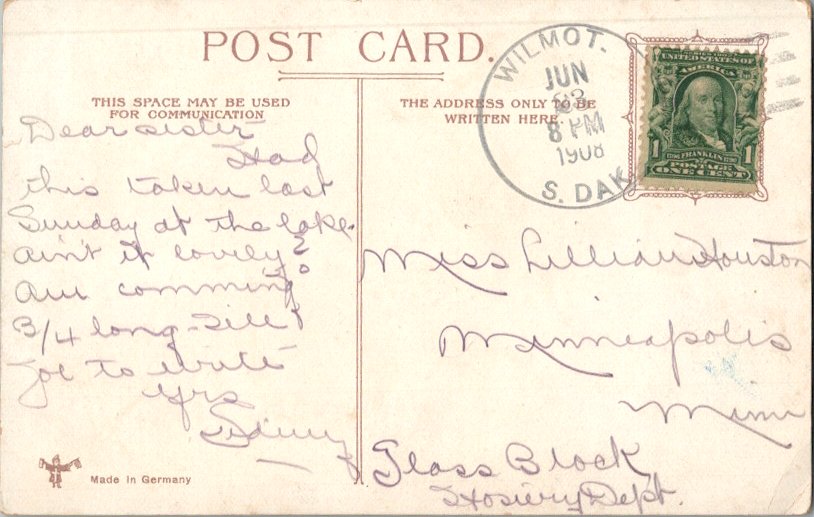 POST CARD.
THIS SPACE MAY BE USED
FOR COMMUNICATION
THE ADDRESS ONLY TO BE
WRITTEN HERE.
WILMOT.
JUN
23
8 PM
1908
S. DAK
UNITED STATES OF
AMERICA
1 FRANKLIN 1
POSTAGE
ONE CENT
Dear sister
Had
this taken last
Sunday at the lake.
ain't it lovely?
am comming
3/4 long - tell
Joe to write
Yrs
Sidney
Miss Lillian Houston
Minneapolis
Minn
Glass Block
Hosiery Dept.
Made in Germany